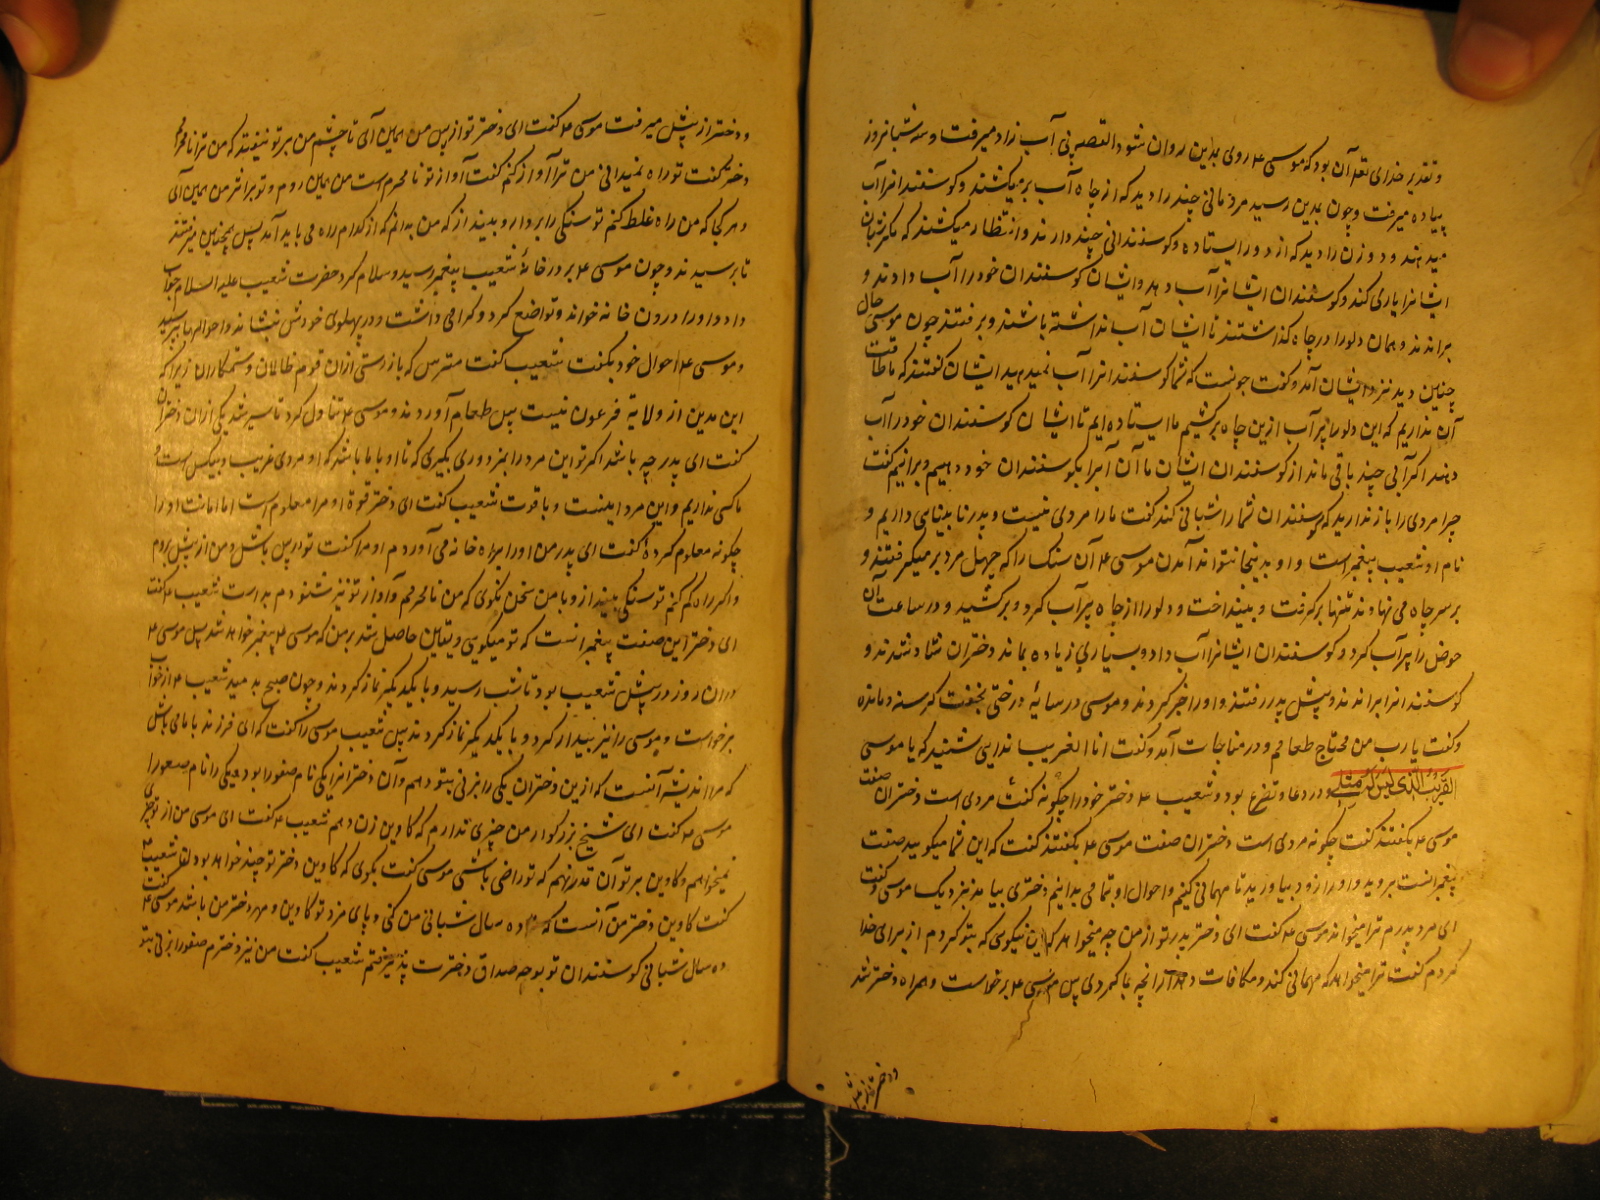 و تقدیر خدای تعه آن بود که موسی ۴ روی بدین روان شود القصه بی آب زاد میرفت و سه شبانروز
پیاده میرفت و چون بمدین رسید مردمانی چند را دید که از چاه آب بر میکشند و کوسفندانرا آب
میدهند و دو زن را دید که از دور ایستاده و کوسفندانی چند دارند و انتظار میکشند که مکر شبان
ایشانرا یاری کند و کوسفندان ایشانرا آب دهد و ایشان کوسفندان خود را آب دادند و
براندند و همان دلو را در چاه کذاشتند تا ایشان آب نداشته باشند و برفتند چون موسی حال
چنان دید نزد ایشان آمد و کفت چونست که شما کوسفندانرا آب نمیدهید ایشان کفتند که ما طاقت
آن نداریم که این دلو را پر آب ازین چاه برکشیم ما ایستاده ایم تا ایشان کوسفندان خود را آب
دهند اکر آبی چند باقی ماند از کوسفندان ایشان ما آن آبرا بکوسفندان خود دهیم و برانیم کفت
چرا مردی را باز ندارید که کوسفندان شما را شبانی کند کفت ما را مردی نیست و پدر نابینای داریم و
نام او شعیب پیغمبر است و او بدینجا نتواند آمدن موسی ۴ آن سنک را که چهل مرد بر میکرفتند و
بر سر چاه می نهادند تنها برکرفت و بینداخت و دلو را از چاه پر آب کرد و برکشید و در ساعت آن
حوض را پر آب کرد و کوسفندان ایشانرا آب داد و بسیاری زیاده بماند دختران شاد شدند و
کوسفندانرا براندند و پیش پدر رفتند و او را خبر کردند و موسی در سایهٔ درختی بخفت کرسنه و مانده
و کفت یا رب من محتاج طعامم و در مناجات آمد و کفت انا الغریب ندایی شنید که یا موسی
الغریب الذی لیس له مثلی و در دعا و تضرع بود و شعیب ۴ دختر خود را چکونه کفت مردی است دختران صفت
موسی ۴ بکفتند کفت چکونه مردی است دختران صفت موسی ۴ بکفتند کفت که این شما میکویید صفت
پیغمبرانست بروید و او را زود بیاورید تا مهمانی کنیم و احوال او تمامی بدانیم دختری بیامد بنزدیک موسی و کفت
ای مرد پدرم ترا میخواند موسی ۴ کفت ای دختر پدر تو از من چه میخواهد که این نیکوی که بتو کردم از برای خدا
کردم کفت ترا میخواهد که مهمانی کند و مکافات دهد آنچه با ما کردی پس موسی ۴ برخواست و همراه دختر شد
و دختر از پیش میرفت موسی ۴ کفت ای دختر تو از پس من همین آی تا چشم من بر تو نیفتد که من ترا نامحرمم
دختر کفت تو راه نمیدانی من ترا آواز کنم کفت آواز تو نامحرم است من همین روم و تو بر اثر من همین آی
و هر کجا که من راه غلط کنم تو سنکی را بردار و بینداز که من بدانم که از کدام راه می باید آمد پس همچنین میرفتند
تا برسیدند و چون موسی ۴ بر در خانهٔ شعیب پیغمبر رسید و سلام کرد حضرت شعیب علیه السلام جواب
داد و او را درون خانه خواند و تواضع کرد و کرامی داشت و در پهلوی خودش بنشاند و احوالها بپرسید
و موسی ۴ احوال خود بکفت شعیب کفت مترس که باز رستی از ان قوم ظالمان و ستمکاران زیرا که
این مدین از ولایة فرعون نیست پس طعام آوردند و موسی ۴ تناول کرد تا سیر شد یکی از ان دختران
کفت ای پدر چه باشد اکر تو این مرد را بمزدوری بکیری که تا او با ما باشد که او مردی غریب و بیکس است و
ما کسی نداریم و این مرد امینست و با قوت شعیب کفت ای دختر قوة او مرا معلوم است اما امانت او را
چکونه معلوم کردهٔ کفت ای پدر من او را براه خانه می آوردم او مرا کفت تو از پس باش و من از پیش بروم
و اکر راه کم کنم تو سنکی بینداز و با من سخن نکوی که من نامحرمم و آواز تو نیز شنودم بد است شعیب ۴ کفت
ای دختر این صفت پیغمبرانست که تو میکویی و یقین حاصل شد بر من که موسی ۴ پیغمبر خواهد شد پس موسی ۴
در ان روز در پیش شعیب بود تا شب رسید و با یکدیکر نماز کردند و چون صبح بدمید شعیب ۴ از خواب
برخواست و موسی را نیز بیدار کرد و با یکدیکر نماز کردند پس شعیب موسی را کفت که ای فرزند با ما می باش
که مرا اندیشه آنست که ازین دختران یکی را بزنی بتو دهم و آن دخترانرا یکی نام صفورا بود و یکی را نام صعورا
موسی ۴ کفت ای شیخ بزرکوار من چیزی ندارم که کاوین زن دهم شعیب ۴ کفت ای موسی من از تو چیزی
نمیخواهم و کاوین بر تو آن قدر نهم که تو راضی باشی موسی کفت بکوی که کاوین دختر تو چند خواهد بود شعیب ۴
کفت کاوین دختر من آنست که ده سال شبانی من کنی و پای مزد تو کاوین و مهر دختر من باشد موسی ۴ کفت
ده سال شبانی کوسفندان تو بوجه صداق دخترت پذیرفتم شعیب کفت من نیز دخترم صفورا بزنی بتو
و دختر از پیش